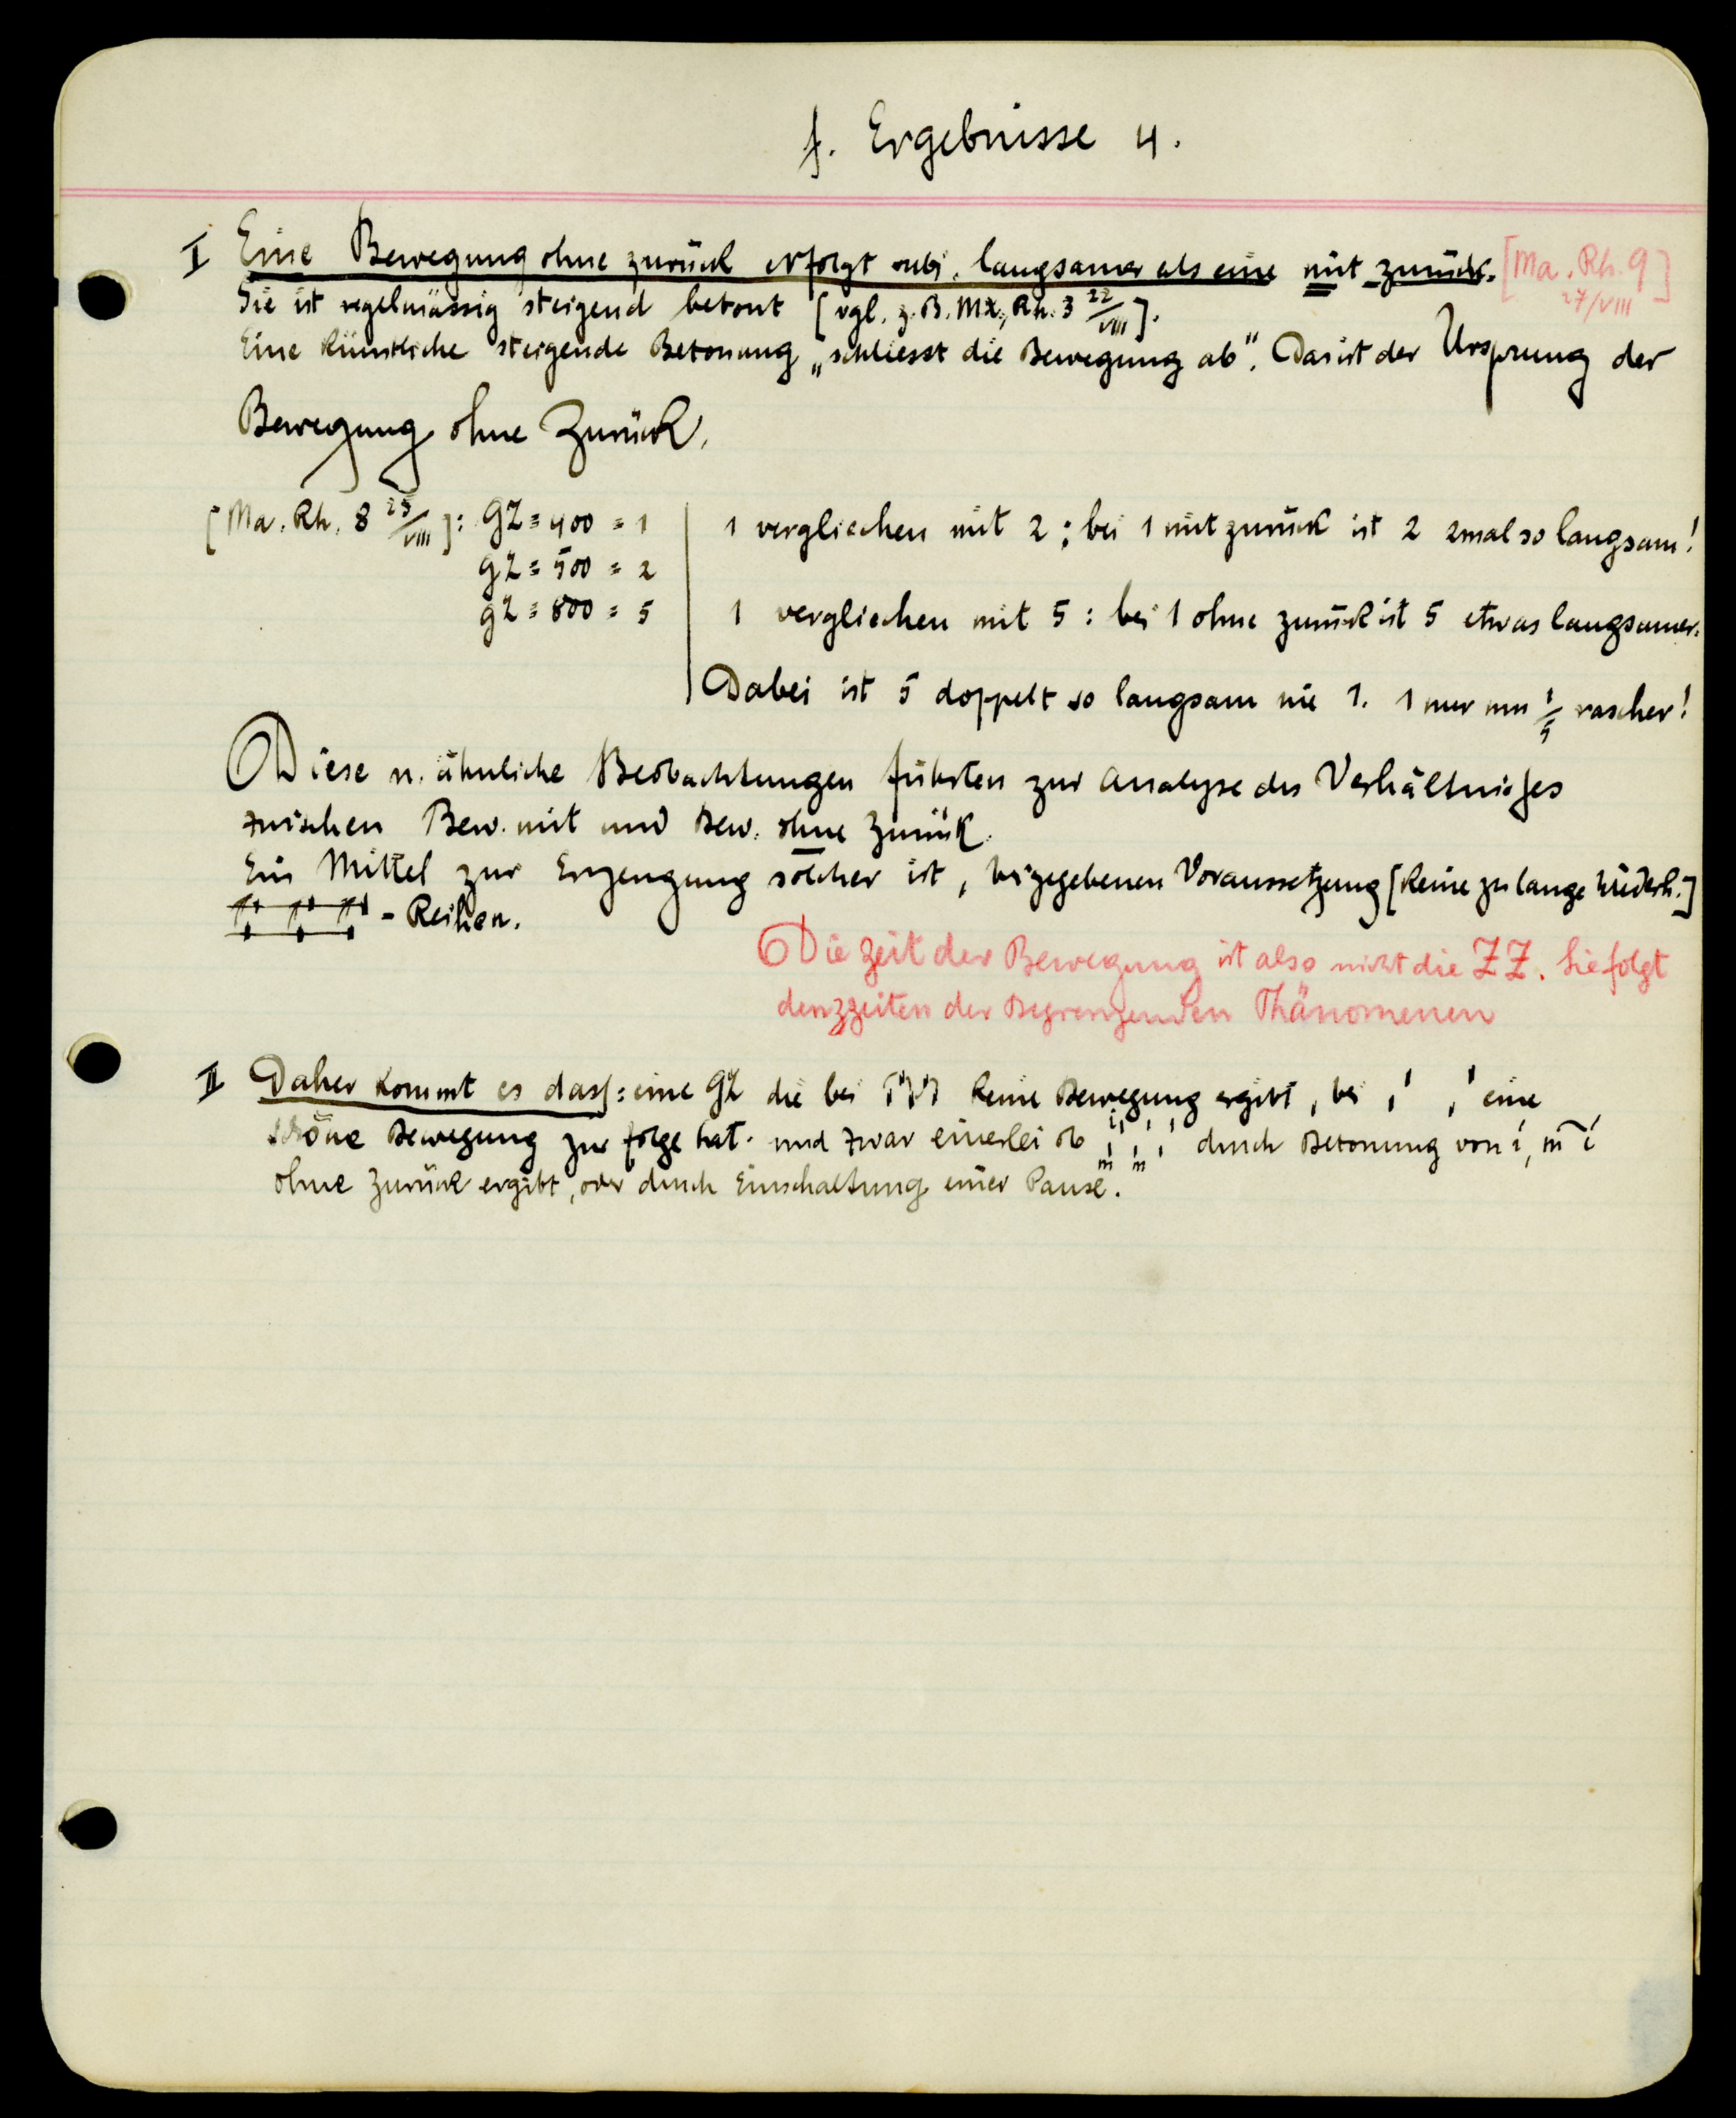 f. Ergebnisse 4.
I Eine Bewegung ohne zurück erfolgt subj. langsamer als eine mit zurück. [Ma. Rh. 9] 27/VIII
Sie ist regelmässig steigend betont [vgl. z.B. Mx, Rh. 3 22/VIII].
Eine künstliche steigende Betonung „schliesst die Bewegung ab". Das ist der Ursprung der
Bewegung ohne Zurück.
[Ma. Rh. 8 25/VIII]: GZ = 400 = 1
gZ = 500 = 2
gZ = 800 = 5
1 verglichen mit 2; bei 1 mit zurück ist 2 2mal so langsam!
1 verglichen mit 5: bei 1 ohne zurück ist 5 etwas langsamer.
Dabei ist 5 doppelt so langsam wie 1. 1 nur um 1/5 rascher!
Diese u. ähnliche Beobachtungen führten zur Analyse des Verhältnisses
zwischen Bew. mit und Bew. ohne Zurück.
Ein Mittel zur Erzeugung solcher ist, bei gegebenen Voraussetzung [keine zu lange Wiederh.]
- Reihen.
Die Zeit der Bewegung ist also nicht die ZZ. Sie folgt
den ZZeiten der Begrenzenden Phänomenen
II Daher kommt es dass: eine GZ die bei keine Bewegung ergibt, bei eine
schöne Bewegung zur folge hat. und zwar einerlei ob durch Betonung von i, m i
ohne Zurück ergibt, oder durch Einschaltung einer Pause.